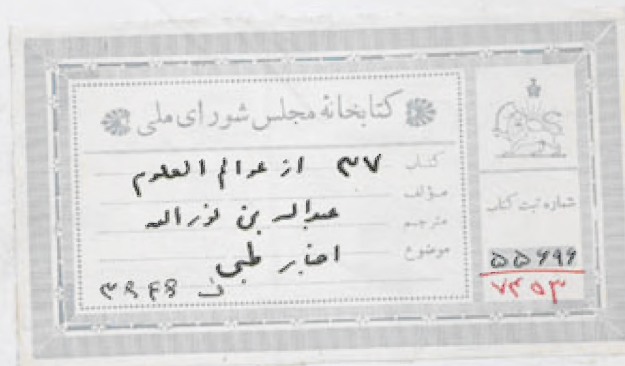 کتابخانهٔ مجلس شورای ملی
کتاب ۳۷ از عوالم العلوم
مؤلف
مترجم عبداله بن نوراله
موضوع اخبار طبی
ف ۳۹۴۹
شماره ثبت کتاب
۵۵۶۹۶
۷۳۵۳